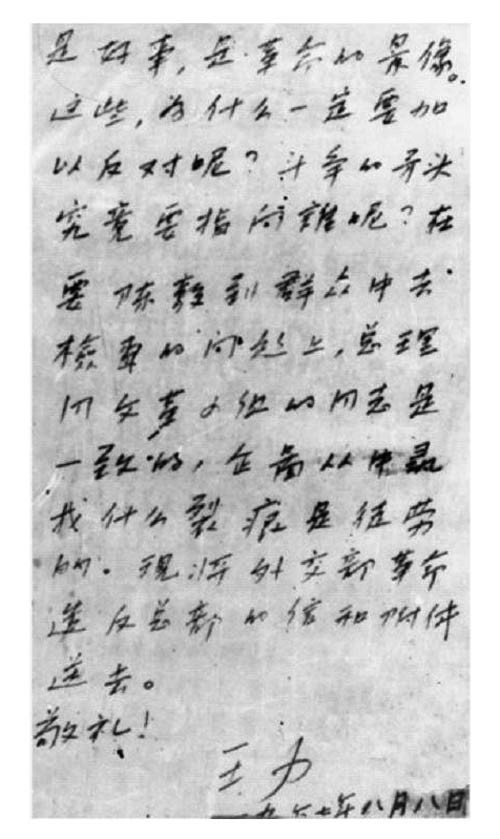 是好事，是革命的景像。
这些，为什么一定要加
以反对呢？斗争的矛头
究竟要指向誰呢？在
要陈毅到群众中去
檢查的问题上，总理
同文革小组的同志是
一致的，企图从中尋
找什么裂痕是徒劳
的。现将外交部革命
造反总部的信和附件
送去。
敬礼！
王力
一九六七年八月八日